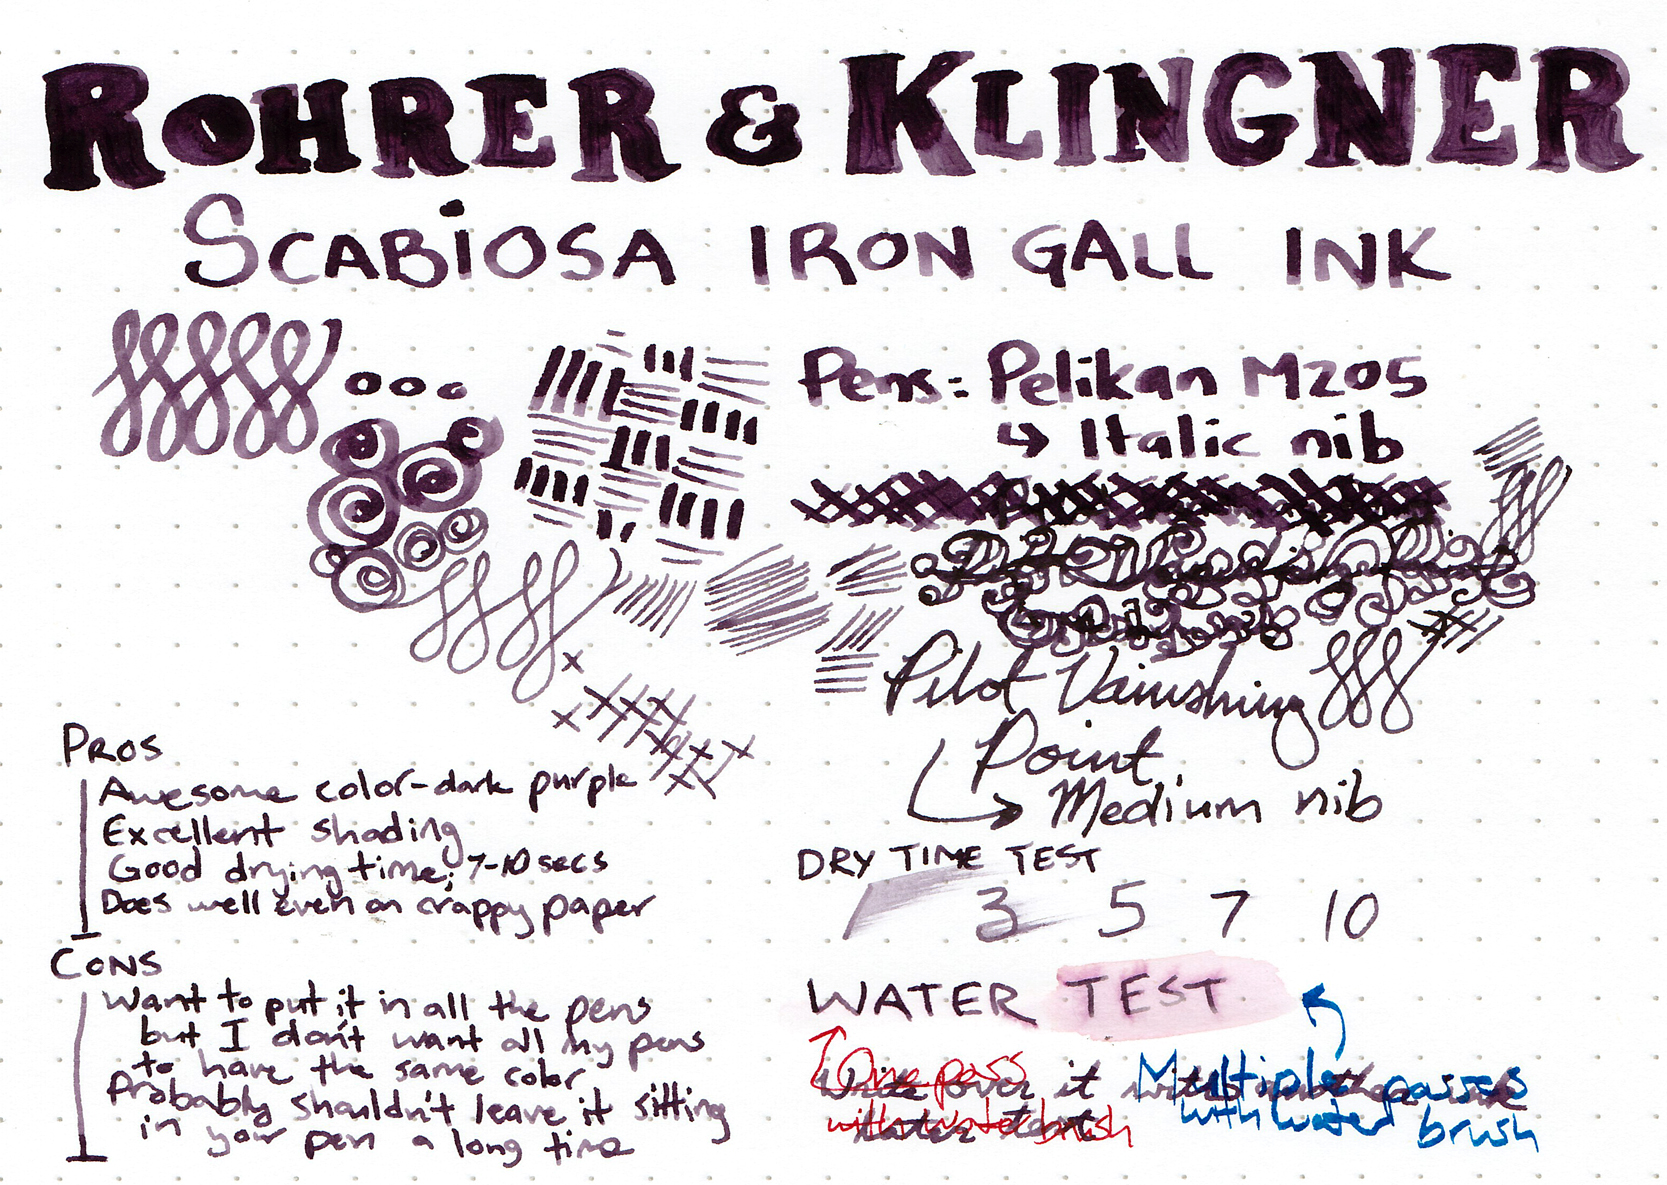 ROHRER & KLINGNER
SCABIOSA IRON GALL INK
Pens: Pelikan M205
↳ Italic nib
Pilot Vanishing
Point
Medium nib
PROS
Awesome color-dark purple
Excellent shading
Good drying time; 7-10 secs
Does well even on crappy paper
CONS
Want to put it in all the pens
but I don't want all my pens
to have the same color
Probably shouldn't leave it sitting
in your pen a long time
DRY TIME TEST
3 5 7 10
WATER TEST
One pass
with water brush
Multiple passes
with water brush